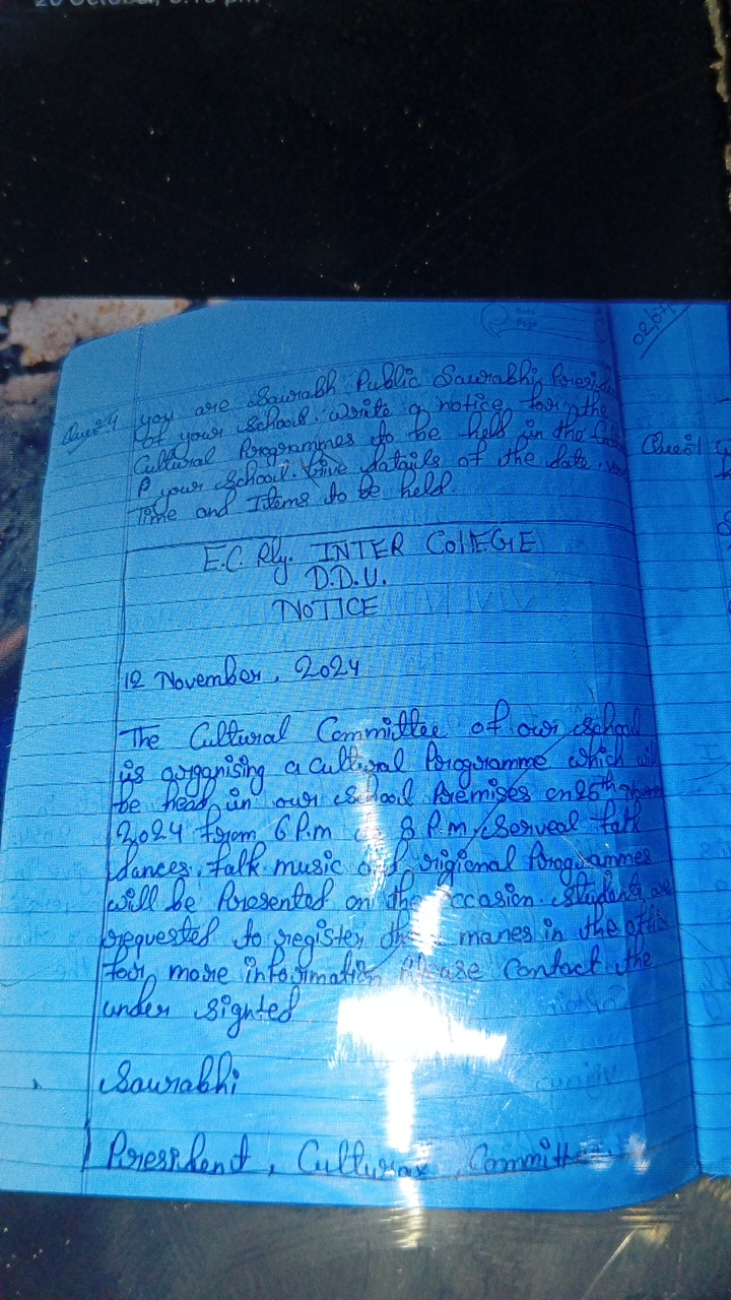 20 October,
Date
Page
Que:4 you are Saurabh Public Saurabhi,
of your school. write a notice for the
Cultural Programmes to be held in the
your school. Give datails of the date,
Time and Items to be held.
E.C. Rly. INTER CollEGE
D.D.U.
NOTICE
12 November, 2024
The Cultural Committee of our school
is organising a cultural Programme which
be head in our school Premises on 25th
2024 from 6 P.m 8 P.m, Serveal
dances, falk music rigional Programmes
will be Presented on the ccasion. Students are
requested to register manes in the
for more information contact the
under sighted
Saurabhi
President, Committ